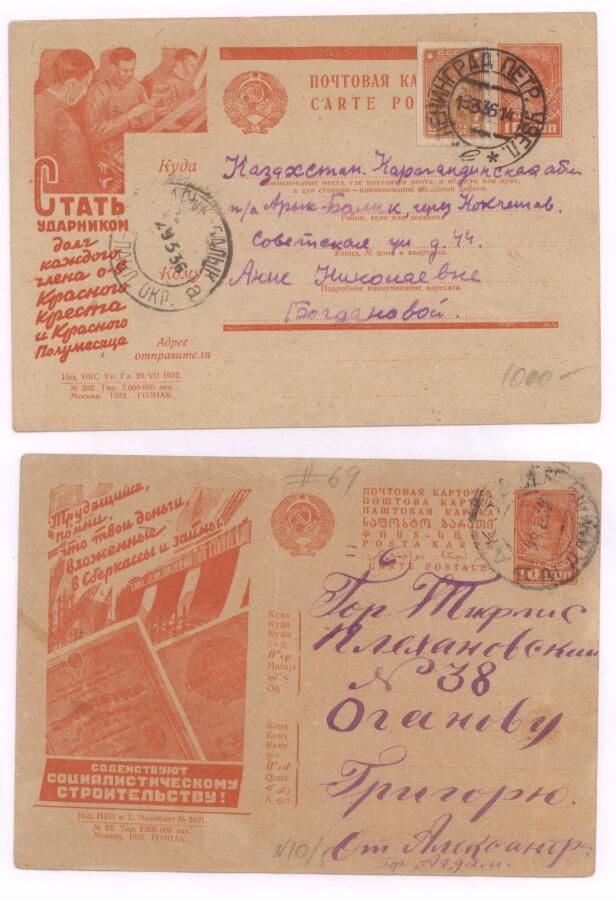 ПОЧТОВАЯ КА
CARTE PO
ЛЕНИНГРАД ПЕТР
1-3 36 14
Куда
Казахстан. Карагандинская обл
наименование места, где находится почта, и области или края,
а для станции—наименование железной дороги.
п/о Арык-Балык, через Кокчетав.
Район, село или деревня
Советская ул д. 44.
Улица, № дома и квартиры.
Кому
Анне Николаевне
Подробное наименование адресата.
Богдановой.
Адрес
отправителя
1000-
СТАТЬ
УДАРНИКОМ
долг
каждого
члена о-в
Красного
Креста
и Красного
Полумесяца
АРЫК-БАЛЫК
29 3 36
ОКР.
Изд. НКС Уп. Гл. 29/VII 1932.
№ 202. Тир. 3.000.000 экз.
Москва 1932. ГОЗНАК.
#69
Трудящийся,
помни,
что твои деньги,
вложенные
в Сберкассы и займы
СОДЕЙСТВУЮТ
СОЦИАЛИСТИЧЕСКОМУ
СТРОИТЕЛЬСТВУ!
Изд. НКП и Т. Мособлит № 2621.
№ 82. Тир. 2.000.000 экз.
Москва, 1931. ГОЗНАК.
ПОЧТОВАЯ КАРТОЧКА
ПОШТОВА КАРТКА
ПАШТОВАЯ КАРТКА
ᲡᲐᲤᲝᲡᲢᲝ ᲑᲐᲠᲐᲗᲘ
POSTA KAR
CARTE POSTALE
10 КОП
Куда
Куди
Куды
Haraja
Où
Кому
Кому
Каму
Qimə
A qui
Гор. Тифлис
Плехановский
№ 38
Оганову
Григорю.
От Александр
Гор. Агдам.
N10/3